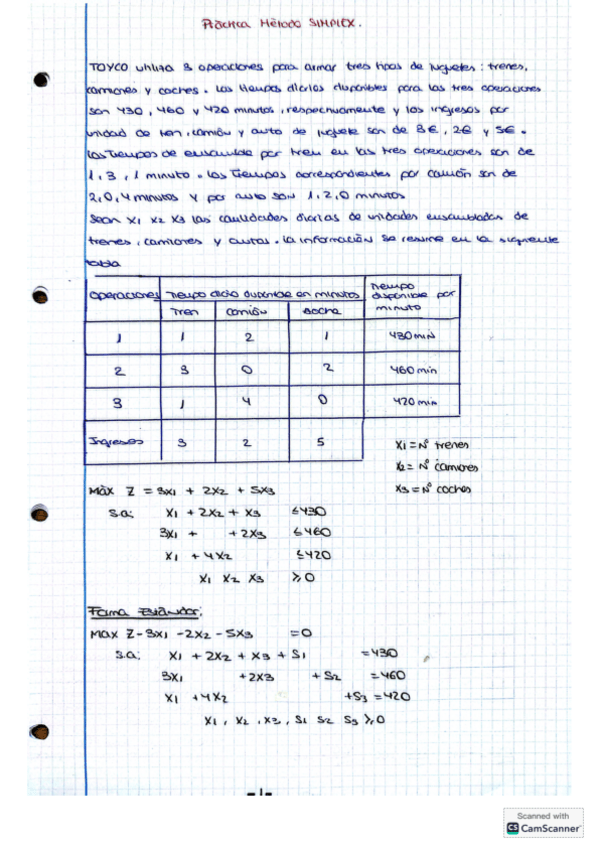 Práctica Método SIMPLEX.
TOYCO utiliza 3 operaciones para armar tres tipos de juguetes: trenes,
camiones y coches. Los tiempos diarios disponibles para las tres operaciones
son 430, 460 y 420 minutos, respectivamente y los ingresos por
unidad de tren, camión y auto de juguete son de 3€, 2€ y 5€.
Los tiempos de ensamble por tren en las tres operaciones son de
1, 3, 1 minuto. Los tiempos correspondientes por camión son de
2, 0, 4 minutos y por auto son 1, 2, 0 minutos
Sean X1 X2 X3 las cantidades diarias de unidades ensambladas de
trenes, camiones y autos. La información se resume en la siguiente
tabla
Operaciones Tiempo disponible en minutos Tiempo disponible por minuto
Tren Camión Coche
1 1 2 1 430 min
2 3 0 2 460 min
3 1 4 0 420 min
Ingresos 3 2 5
X1 = Nº trenes
X2 = Nº camiones
X3 = Nº coches
Máx Z = 3X1 + 2X2 + 5X3
s.a: X1 + 2X2 + X3 ≤430
3X1 + + 2X3 ≤460
X1 + 4X2 ≤420
X1 X2 X3 ≥0
Forma Estándar:
Max Z - 3X1 - 2X2 - 5X3 =0
s.a: X1 + 2X2 + X3 + S1 =430
3X1 +2X3 + S2 =460
X1 +4X2 +S3 =420
X1, X2, X3, S1 S2 S3 ≥0
-1-
Scanned with
CS CamScanner